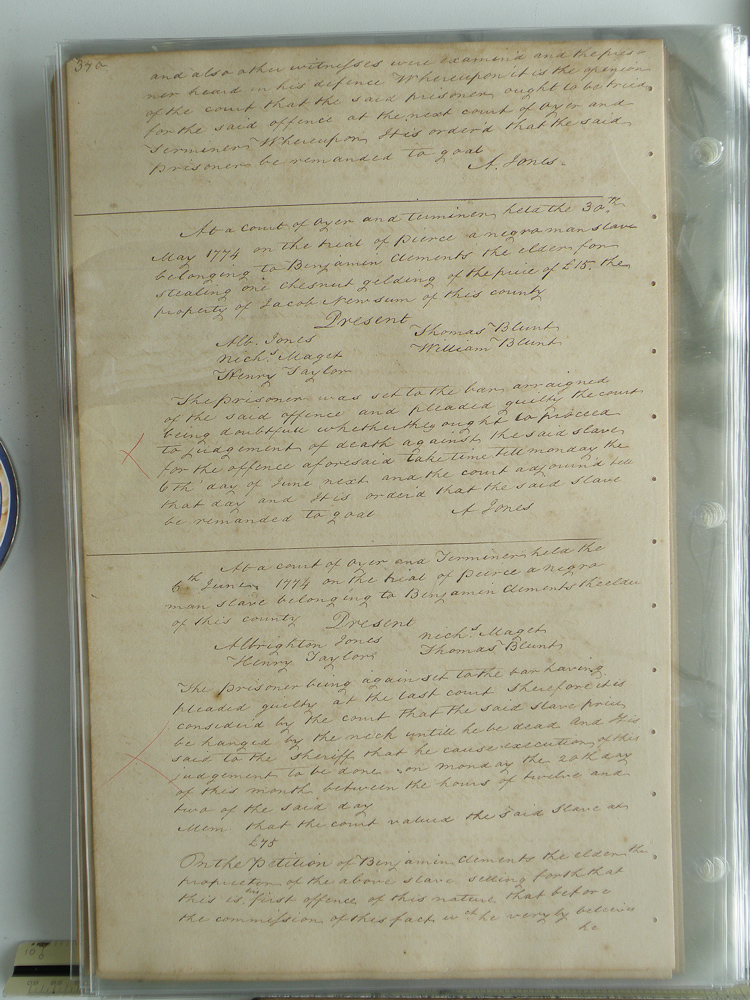 370
and also other witnesses were examind and the pris=
ner heard in his defence Whereupon it is the openion
of the court that the said prisoner ought to be tried
for the said offence at the next court of Oyer and
Terminer Whereupon It is order'd that the said
Prisoner be remanded to goal
A. Jones.
At a court of Oyer and terminer held the 30th
May 1774 on the trial of Pierce a negro man slave
belonging to Benjamin Clements the elder for
stealing one chesnut gelding of the price of £15. the
property of Jacob Newsum of this county
Present
Alb. Jones Thomas Blunt
Nichs. Maget William Blunt
Henry Taylor
The prisoner was set to the bar arraigned
of the said offence and pleaded guilty the court
being doubtfull whether they ought to proceed
to judgement of death against the said slave
for the offence aforesaid take time till monday the
6th day of June next and the court adjournd till
that day and It is order'd that the said slave
be remanded to goal A Jones
At a court of Oyer and Terminer held the
6th June 1774 on the trial of Peirce a negro
man slave belonging to Benjamin Clements the elder
of this county Present
Albrighton Jones Nichs. Maget
Henry Taylor Thomas Blunt
The prisoner being again set to the bar having
pleaded guilty at the last court therefore it is
considerd by the court that the said slave
be hanged by the neck untill he be dead and it is
said to the sheriff that he cause execution of this
judgement to be done on monday the 20th day
of this month between the hours of twelve and
two of the said day
Mem that the court valued the said slave at
£75
On the Petition of Benjamin Clements the elder the
proprietor of the above slave setting forth that
this is his first offence of this nature that before
the commission of this fact wch he veryly believes
he